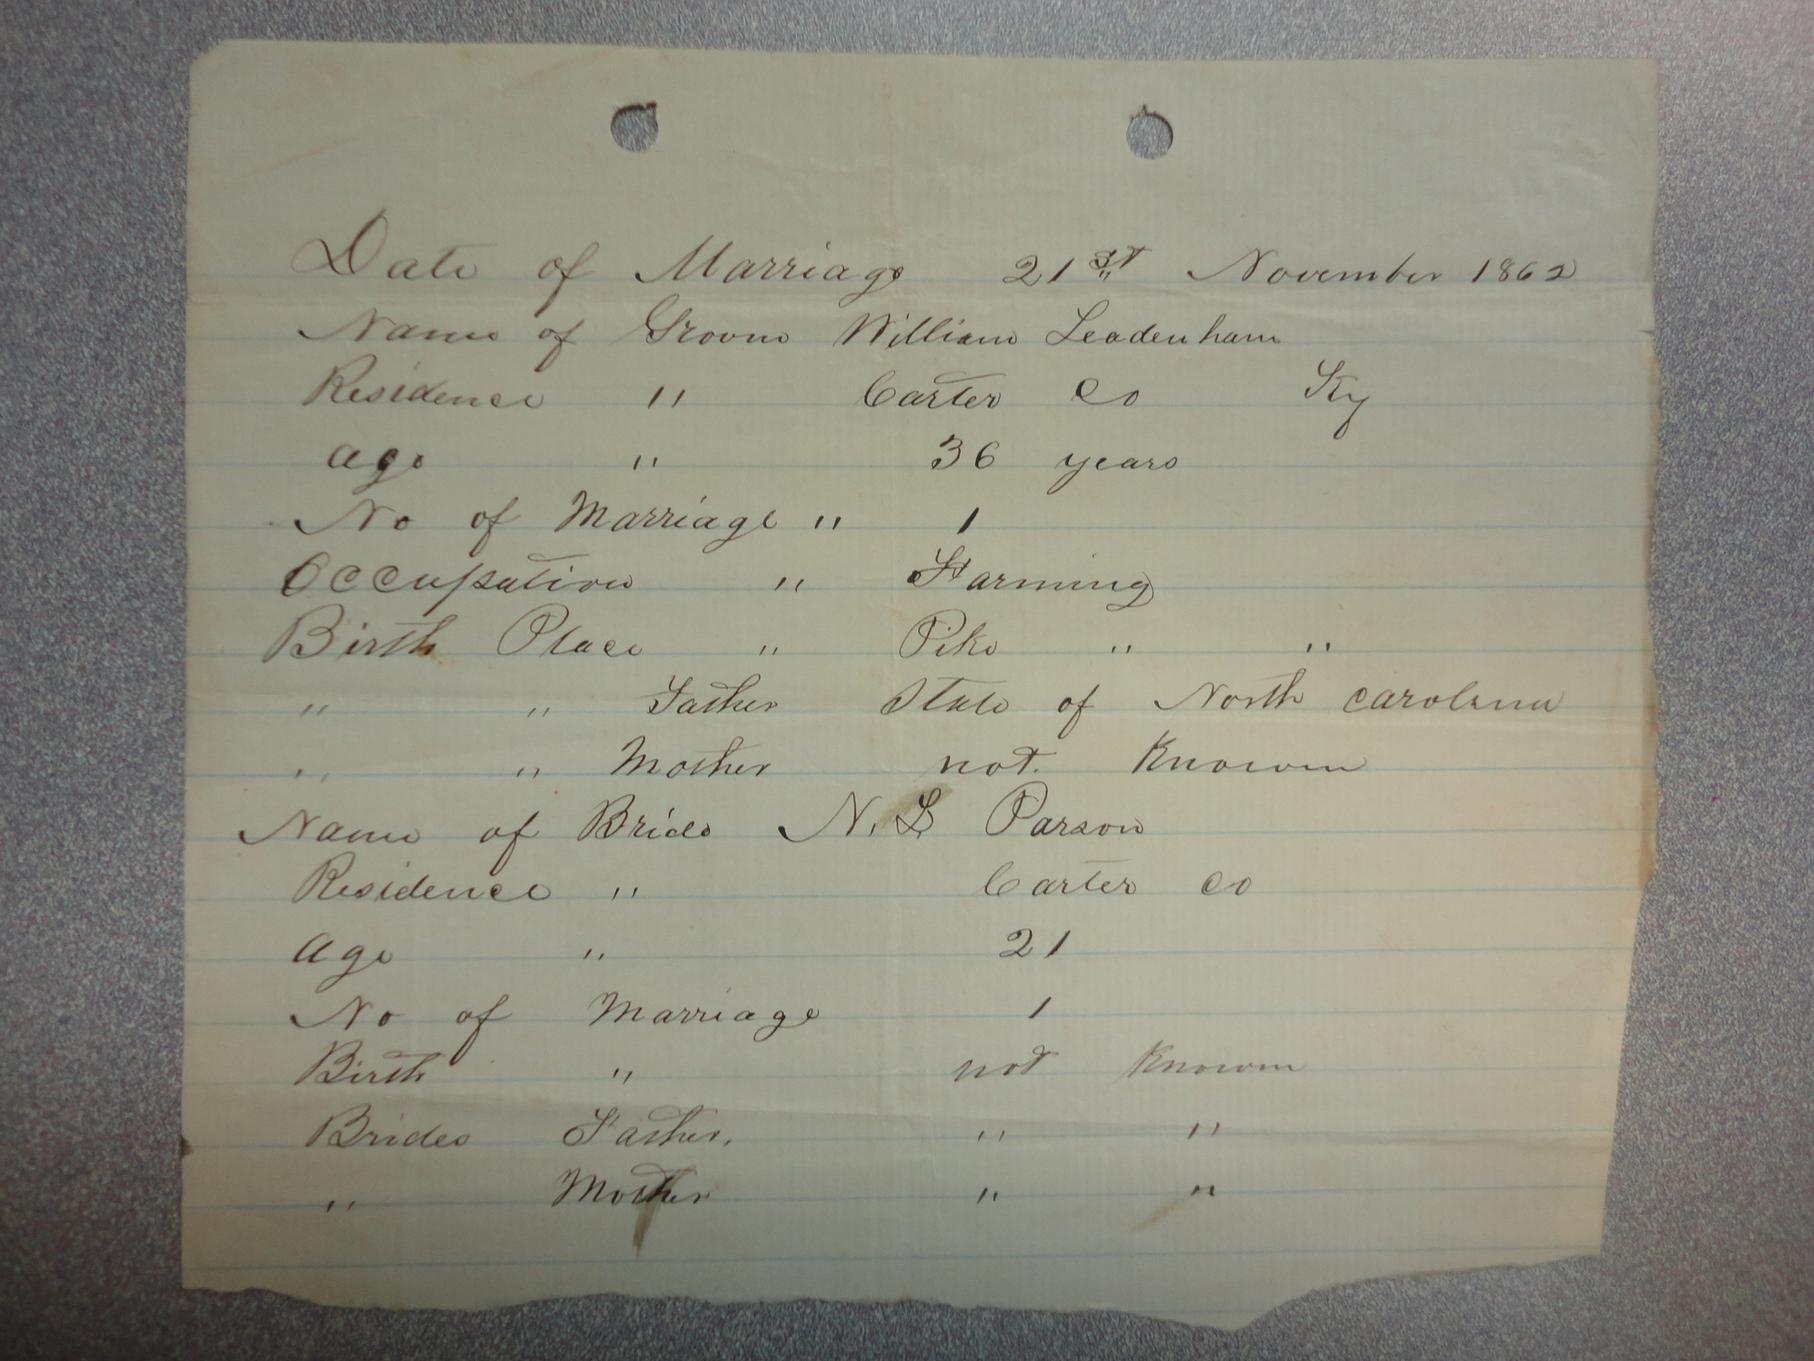 Date of Marriage 21st November 1862
Name of Groom William Leadenham
Residence " Carter Co Ky
age " 36 years
No of Marriage " 1
Occupation " Farming
Birth Place " Pike " "
" " Father State of North carolina
" " Mother not Known
Name of Bride N. L Parson
Residence " Carter co
age " 21
No of Marriage 1
Birth " not Known
Brides Father, " "
" Mother " "